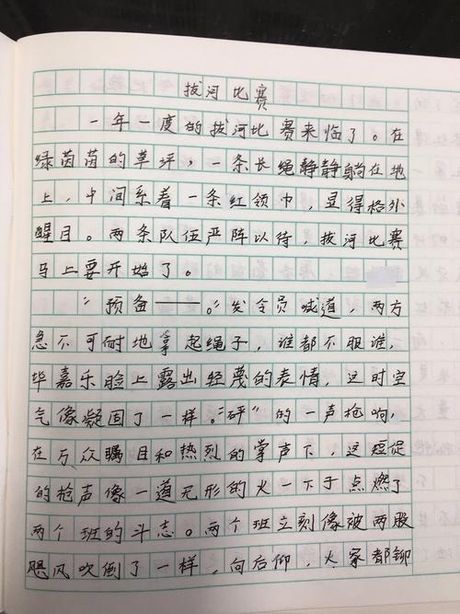 拔河比赛
一年一度的拔河比赛来临了。在
绿茵茵的草坪，一条长绳静静躺在地
上，中间系着一条红领巾，显得格外
醒目。两条队伍严阵以待，拔河比赛
马上要开始了。
“预备——。”发令员喊道，两方
急不可耐地拿起绳子，谁都不服谁，
毕嘉乐脸上露出轻蔑的表情，这时空
气像凝固了一样。“砰”的一声枪响，
在万众瞩目和热烈的掌声下，这短促
的枪声像一道无形的火一下子点燃了
两个班的斗志。两个班立刻像被两股
飓风吹倒了一样，向后仰，大家都铆